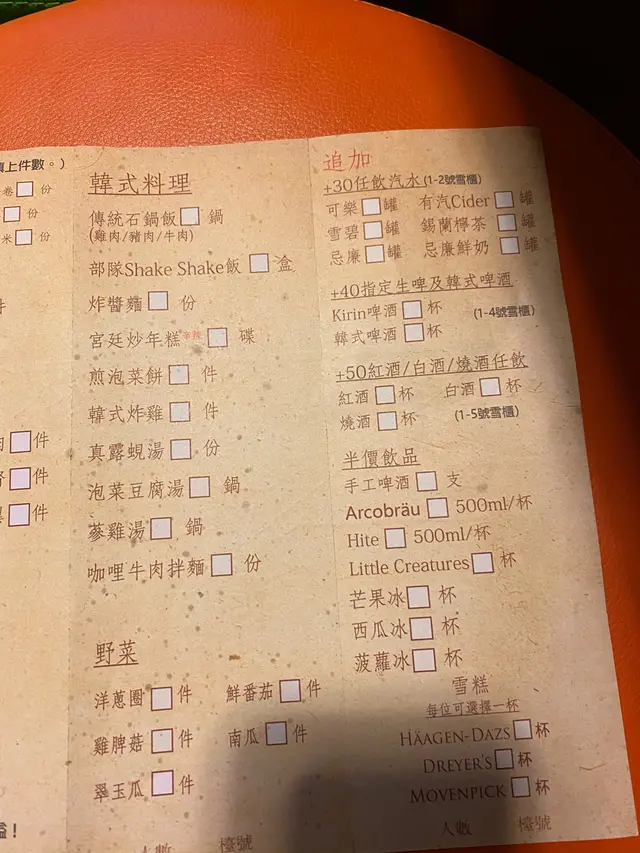 填上件數。)
卷 份
份
米 份
件
件
件
件
韓式料理
傳統石鍋飯 鍋
(雞肉/豬肉/牛肉)
部隊Shake Shake飯 盒
炸醬麵 份
宮廷炒年糕 辛辣 碟
煎泡菜餅 件
韓式炸雞 件
真露蜆湯 份
泡菜豆腐湯 鍋
蔘雞湯 鍋
咖哩牛肉拌麵 份
野菜
洋蔥圈 件 鮮番茄 件
雞脾菇 件 南瓜 件
翠玉瓜 件
人數 檯號
追加
+30任飲汽水(1-2號雪櫃)
可樂 罐 有汽Cider 罐
雪碧 罐 錫蘭檸茶 罐
忌廉 罐 忌廉鮮奶 罐
+40指定生啤及韓式啤酒
Kirin啤酒 杯 (1-4號雪櫃)
韓式啤酒 杯
+50紅酒/白酒/燒酒任飲
紅酒 杯 白酒 杯
燒酒 杯 (1-5號雪櫃)
半價飲品
手工啤酒 支
Arcobräu 500ml/杯
Hite 500ml/杯
Little Creatures 杯
芒果冰 杯
西瓜冰 杯
菠蘿冰 杯
雪糕
每位可選擇一杯
HÄAGEN-DAZS 杯
DREYER'S 杯
MOVENPICK 杯
人數 檯號